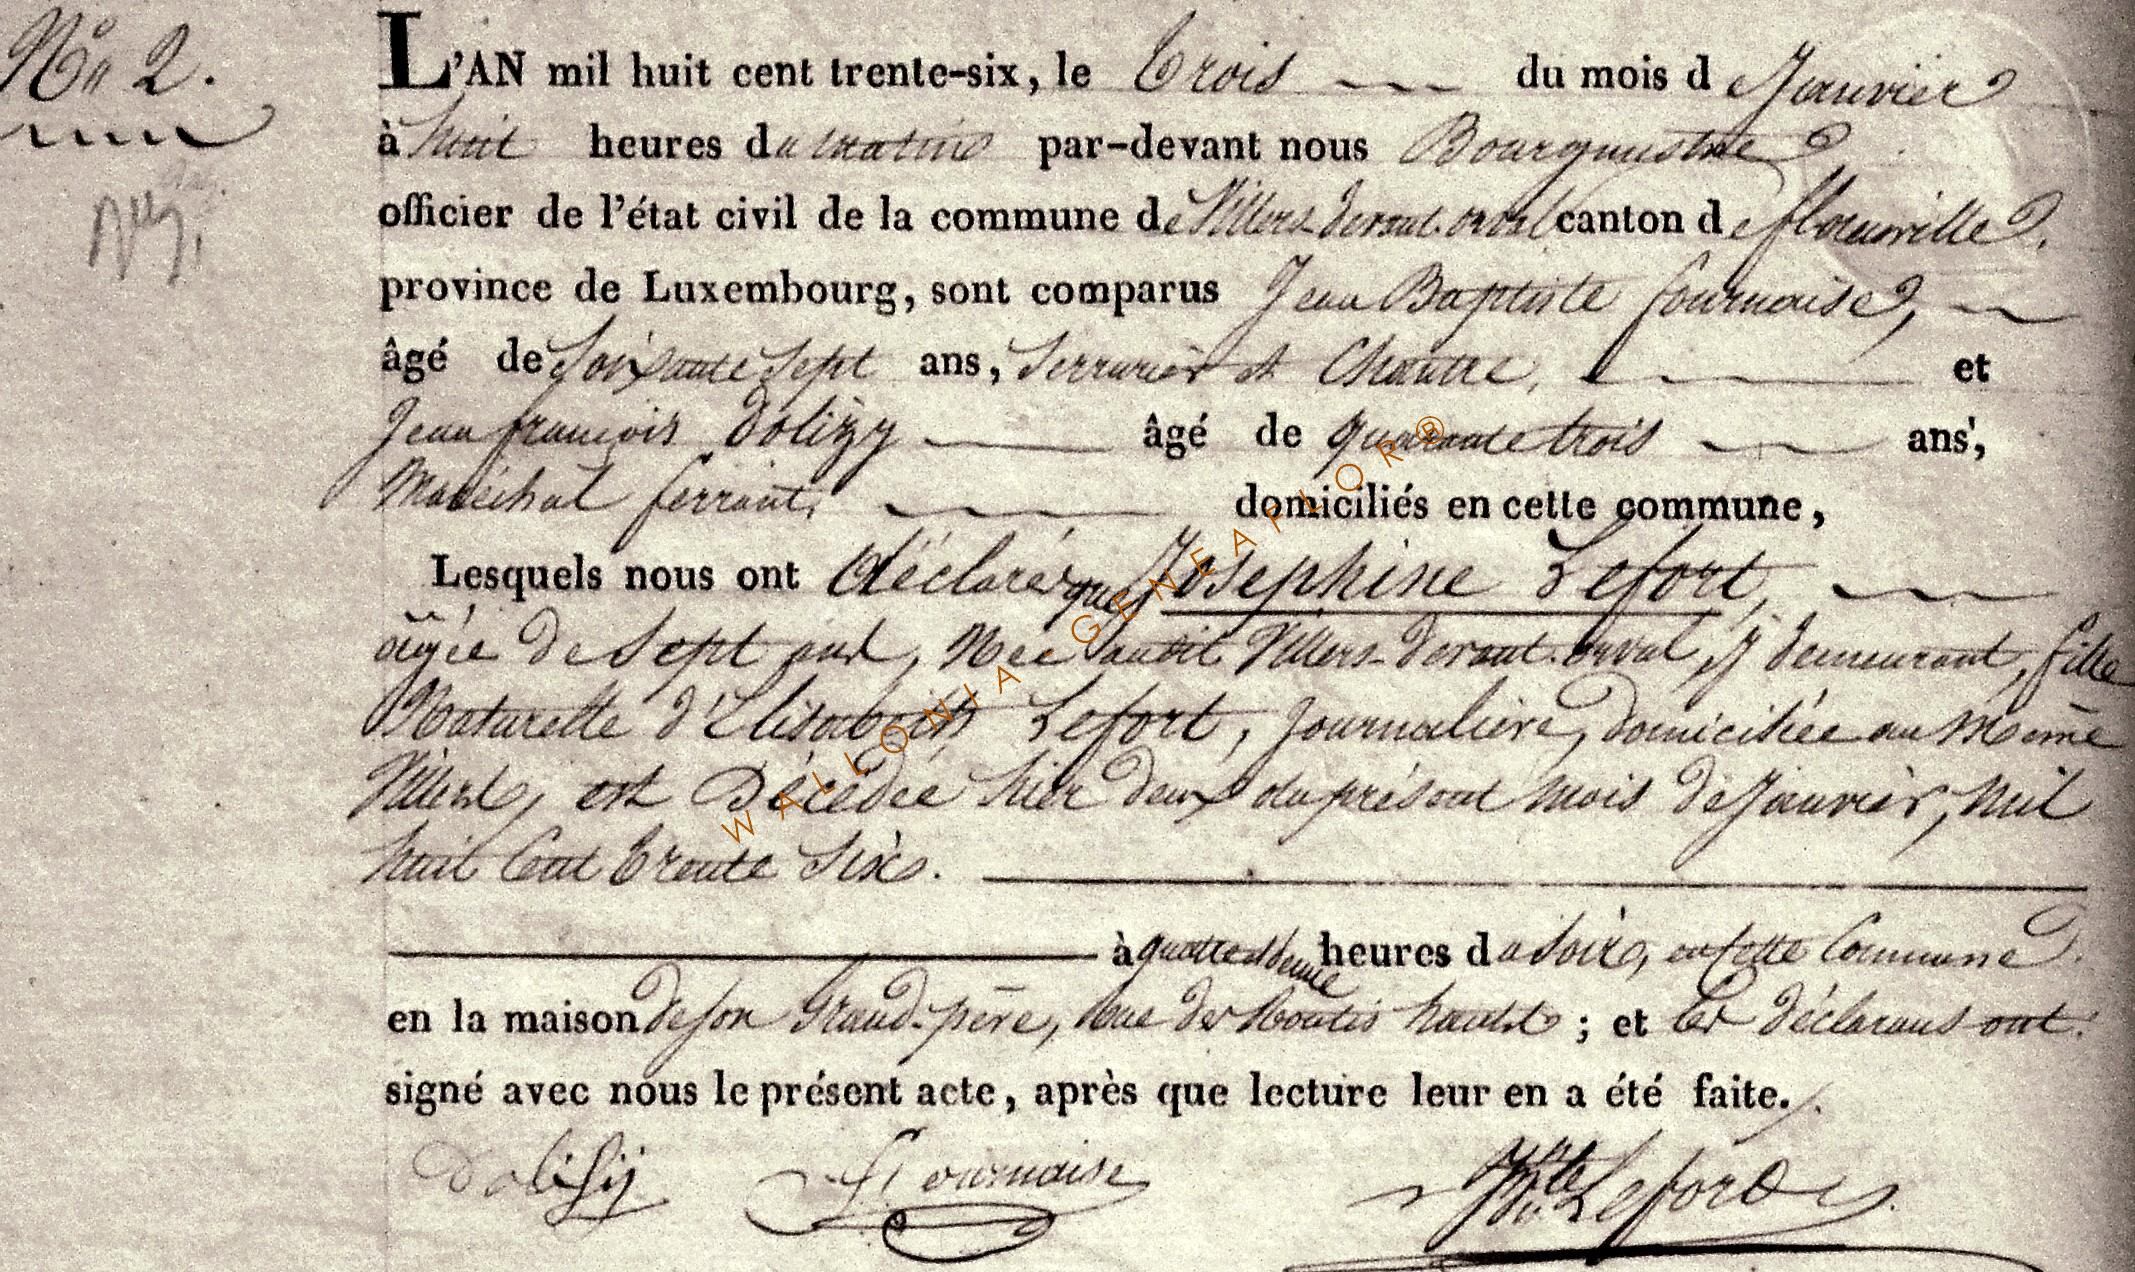 No 2.
L'AN mil huit cent trente-six, le trois du mois de Janvier
à huit heures du matin par-devant nous Bourgmestre
officier de l'état civil de la commune de Villers-devant-orval canton de florenville.
province de Luxembourg, sont comparus Jean Baptiste fournaise,
âgé de Soixante Sept ans, Serrurier et Chantre, et
Jean françois Dolizy âgé de quarante trois ans,
Maréchal ferrant, domiciliés en cette commune,
Lesquels nous ont déclaré que Josephine Lefort,
âgée de Sept ans, Née audit Villers-devant-orval, y demeurant, fille
Naturelle d'Elisabeth Lefort, Journalière, domiciliée au Même
Villers, est Décédée hier deux du présent mois de Janvier, Mil
huit Cent trente Six.
à quatre et demie heures du soir, en Cette Commune
en la maison de son Grand-père, Rue des haut ; et les déclarans ont
signé avec nous le présent acte, après que lecture leur en a été faite.
Dolisy Fournaise Lefort
WALLONIA GENEAFLOR®